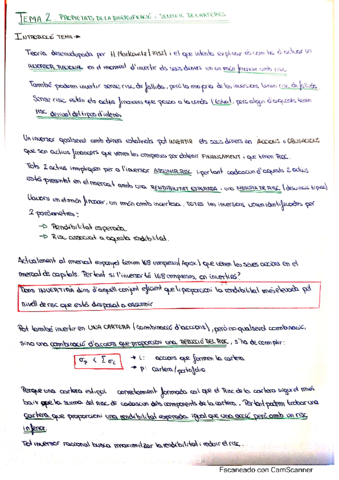 TEMA 2 PROPIETATS DE LA DIVERSIFICACIÓ I SELECCIÓ DE CARTERES
INTRODUCCIÓ TEMA →
Teoria desenvolupada per H. Markowitz (1952) i el que intenta explicar és com ha d'actuar un
INVERSOR RACIONAL en el moment d'invertir els seus diners en un món financer amb risc.
També podem invertir sense risc de fallida, però la majoria de les inversions tenen risc de fallida.
Sense risc estan els actius financers que posen a la venda l'Estat, però algun d'aquests tenen
RISC derivat del tipus d'interès.
Un inversor qualsevol amb diners estalviats pot INVERTIR els seus diners en ACCIONS o OBLIGACIONS
que són actius financers que venen les empreses per obtenir FINANÇAMENT i que tenen RISC.
Tots 2 actius impliquen per a l'inversor ASSUMIR RISC i per tant cadascun d'aquests actius
està presentat en el mercat amb una RENDIBILITAT ESPERADA i una MESURA DE RISC (desviació típica)
Llavors en el món financer, un món amb incertesa, totes les inversions venen identificades per
2 paràmetres:
→ Rendibilitat esperada.
→ Risc associat a aquesta rendibilitat.
Actualment al mercat espanyol tenim 168 empreses (aprox) que venen les seves accions en el
mercat de capitals. Per tant si l'inversor té 168 empreses, on invertiria?
Doncs INVERTIRIA dins d'aquell conjunt eficient que li proporciona la rendibilitat més elevada pel
nivell de risc que està disposat a assumir
Pot també invertir en UNA CARTERA (combinació d'accions), però no qualsevol combinació,
sino una combinació d'accions que proporcioni una REDUCCIÓ DEL RISC, s'ha de complir:
σp < Σσi
→ i: accions que formen la cartera
→ p: cartera/portafolio
Perquè una cartera estigui correctament formada cal que el Risc de la cartera sigui el més
baix que la suma del risc de cadascun dels components de la cartera. Per tant podem trobar una
cartera que proporcioni una rendibilitat esperada igual que una acció però amb un risc
inferior.
Tot inversor racional busca maximitzar la rendibilitat i reduir el risc.
Escaneado con CamScanner